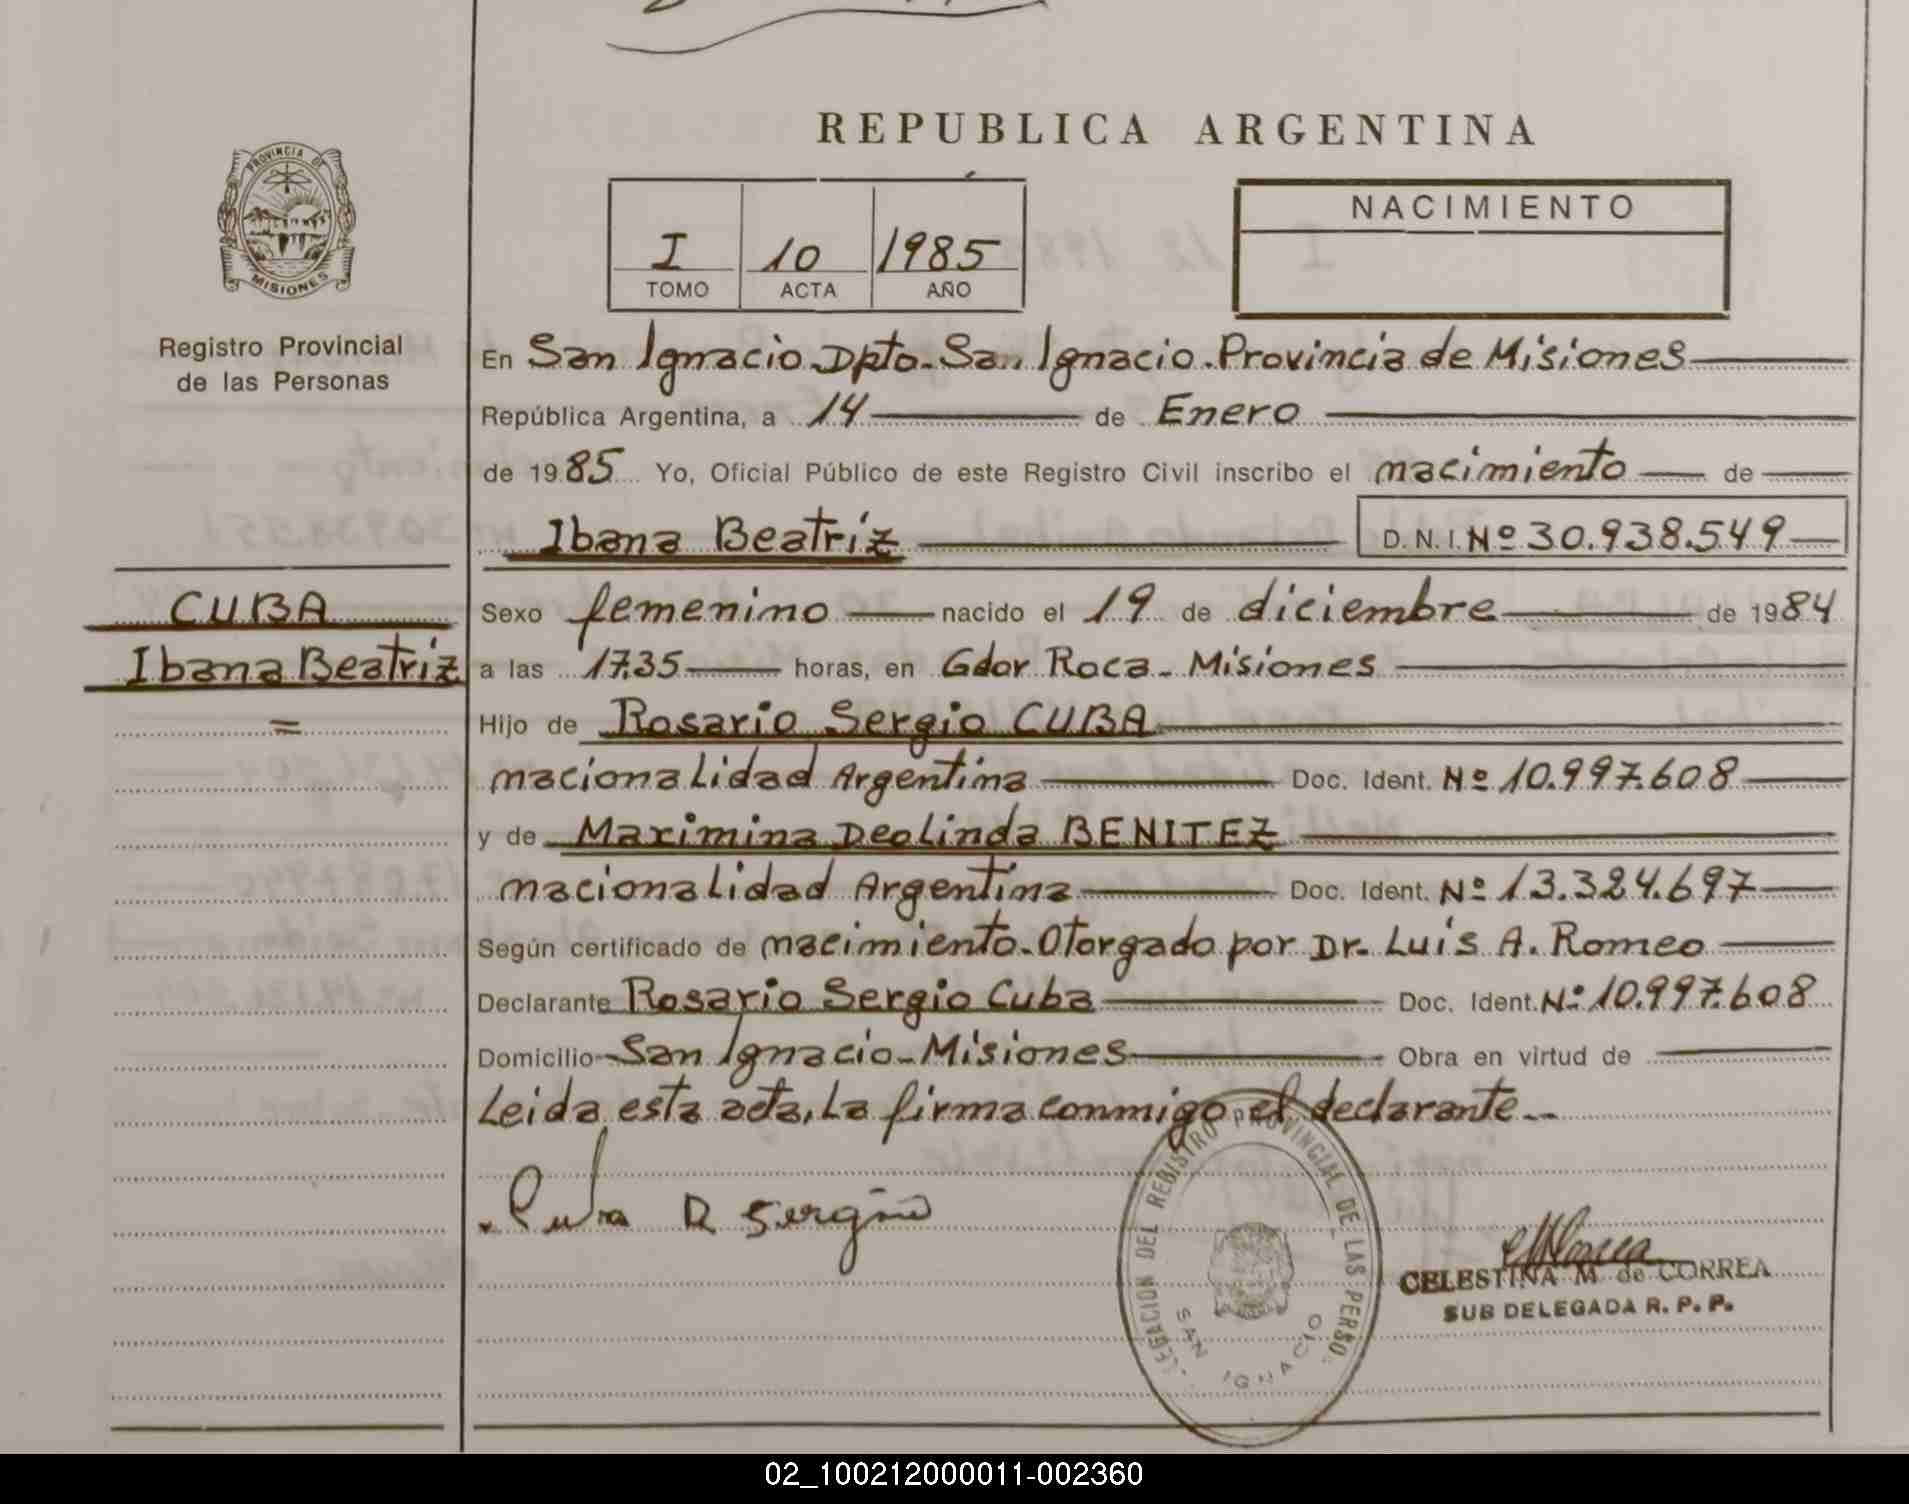 REPUBLICA ARGENTINA
PROVINCIA DE
MISIONES
Registro Provincial
de las Personas
I 10 1985
TOMO ACTA AÑO
NACIMIENTO
En San Ignacio. Dpto. San Ignacio. Provincia de Misiones
República Argentina, a 14 de Enero
de 1985 Yo, Oficial Público de este Registro Civil inscribo el nacimiento de
Ibana Beatriz D. N. I. Nº 30.938.549
CUBA
Ibana Beatriz
=
Sexo femenino nacido el 19 de diciembre de 1984
a las 17.35 horas, en Gdor Roca - Misiones
Hijo de Rosario Sergio CUBA
nacionalidad Argentina Doc. Ident. Nº 10.997.608
y de Maximina Deolinda BENITEZ
nacionalidad Argentina Doc. Ident. Nº 13.324.697
Según certificado de nacimiento. Otorgado por Dr. Luis A. Romeo
Declarante Rosario Sergio Cuba Doc. Ident. Nº 10.997.608
Domicilio San Ignacio - Misiones Obra en virtud de
Leida esta acta, la firma conmigo el declarante.
Cuba R Sergio
DELEGACION DEL REGISTRO PROVINCIAL DE LAS PERSO.
SAN IGNACIO
CELESTINA M de CORREA
SUB DELEGADA R. P. P.
02_100212000011-002360